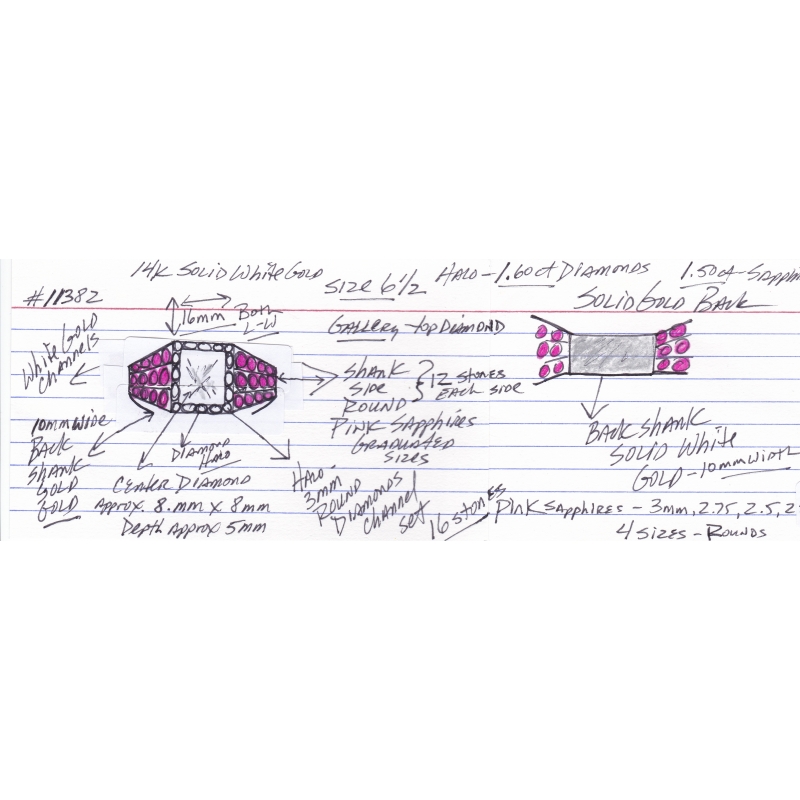 14K Solid White Gold
#11382
Size 6 1/2
Halo - 1.60ct Diamonds
1.50ct - Sapphi
Solid Gold Back
16mm Both
L-W
Gallery top Diamond
White Gold
Channels
Shank
Side
Round
12 Stones
Each side
Pink Sapphires
Graduated
Sizes
10mm wide
Back
Shank
Gold
Gold
Diamond
Halo
Center Diamond
Approx. 8.mm x 8mm
Depth Approx 5mm
Halo -
3mm
Round
Diamonds
Channel
Set
16 Stones
Back Shank
Solid White
Gold - 10mm Width
Pink Sapphires - 3mm, 2.75, 2.5, 2
4 Sizes - Rounds